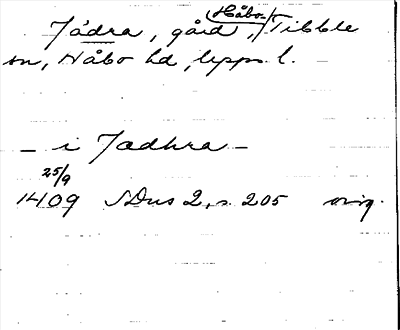 Jädra, gård, Håbo-Tibble
sn, Håbo hd, Upps. l.
– i Jadhra –
25/9
1409 SDns 2, s. 205 orig.